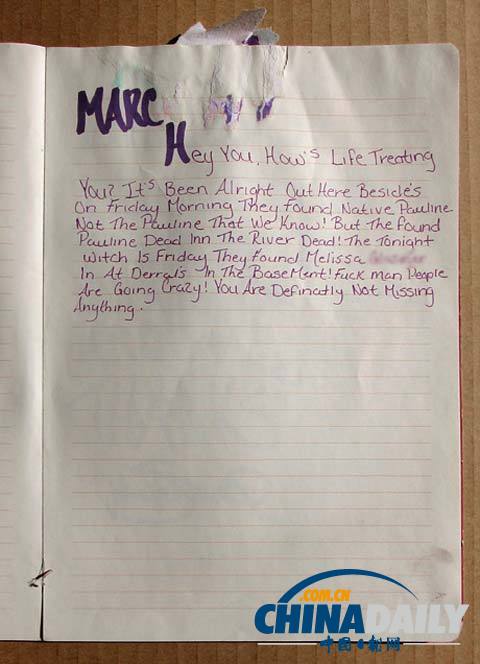 MARC
Hey You, How's Life Treating
You? It's Been Alright Out Here Besides
On Friday Morning They Found Native Pauline
Not The Pauline That We Know! But The Found
Pauline Dead Inn The River Dead! The Tonight
Witch Is Friday They Found Melissa
In At Derral's In The Basement! Fuck man People
Are Going Crazy! You Are Definatly Not Missing
Anything.
.COM.CN
CHINADAILY
中国日报网